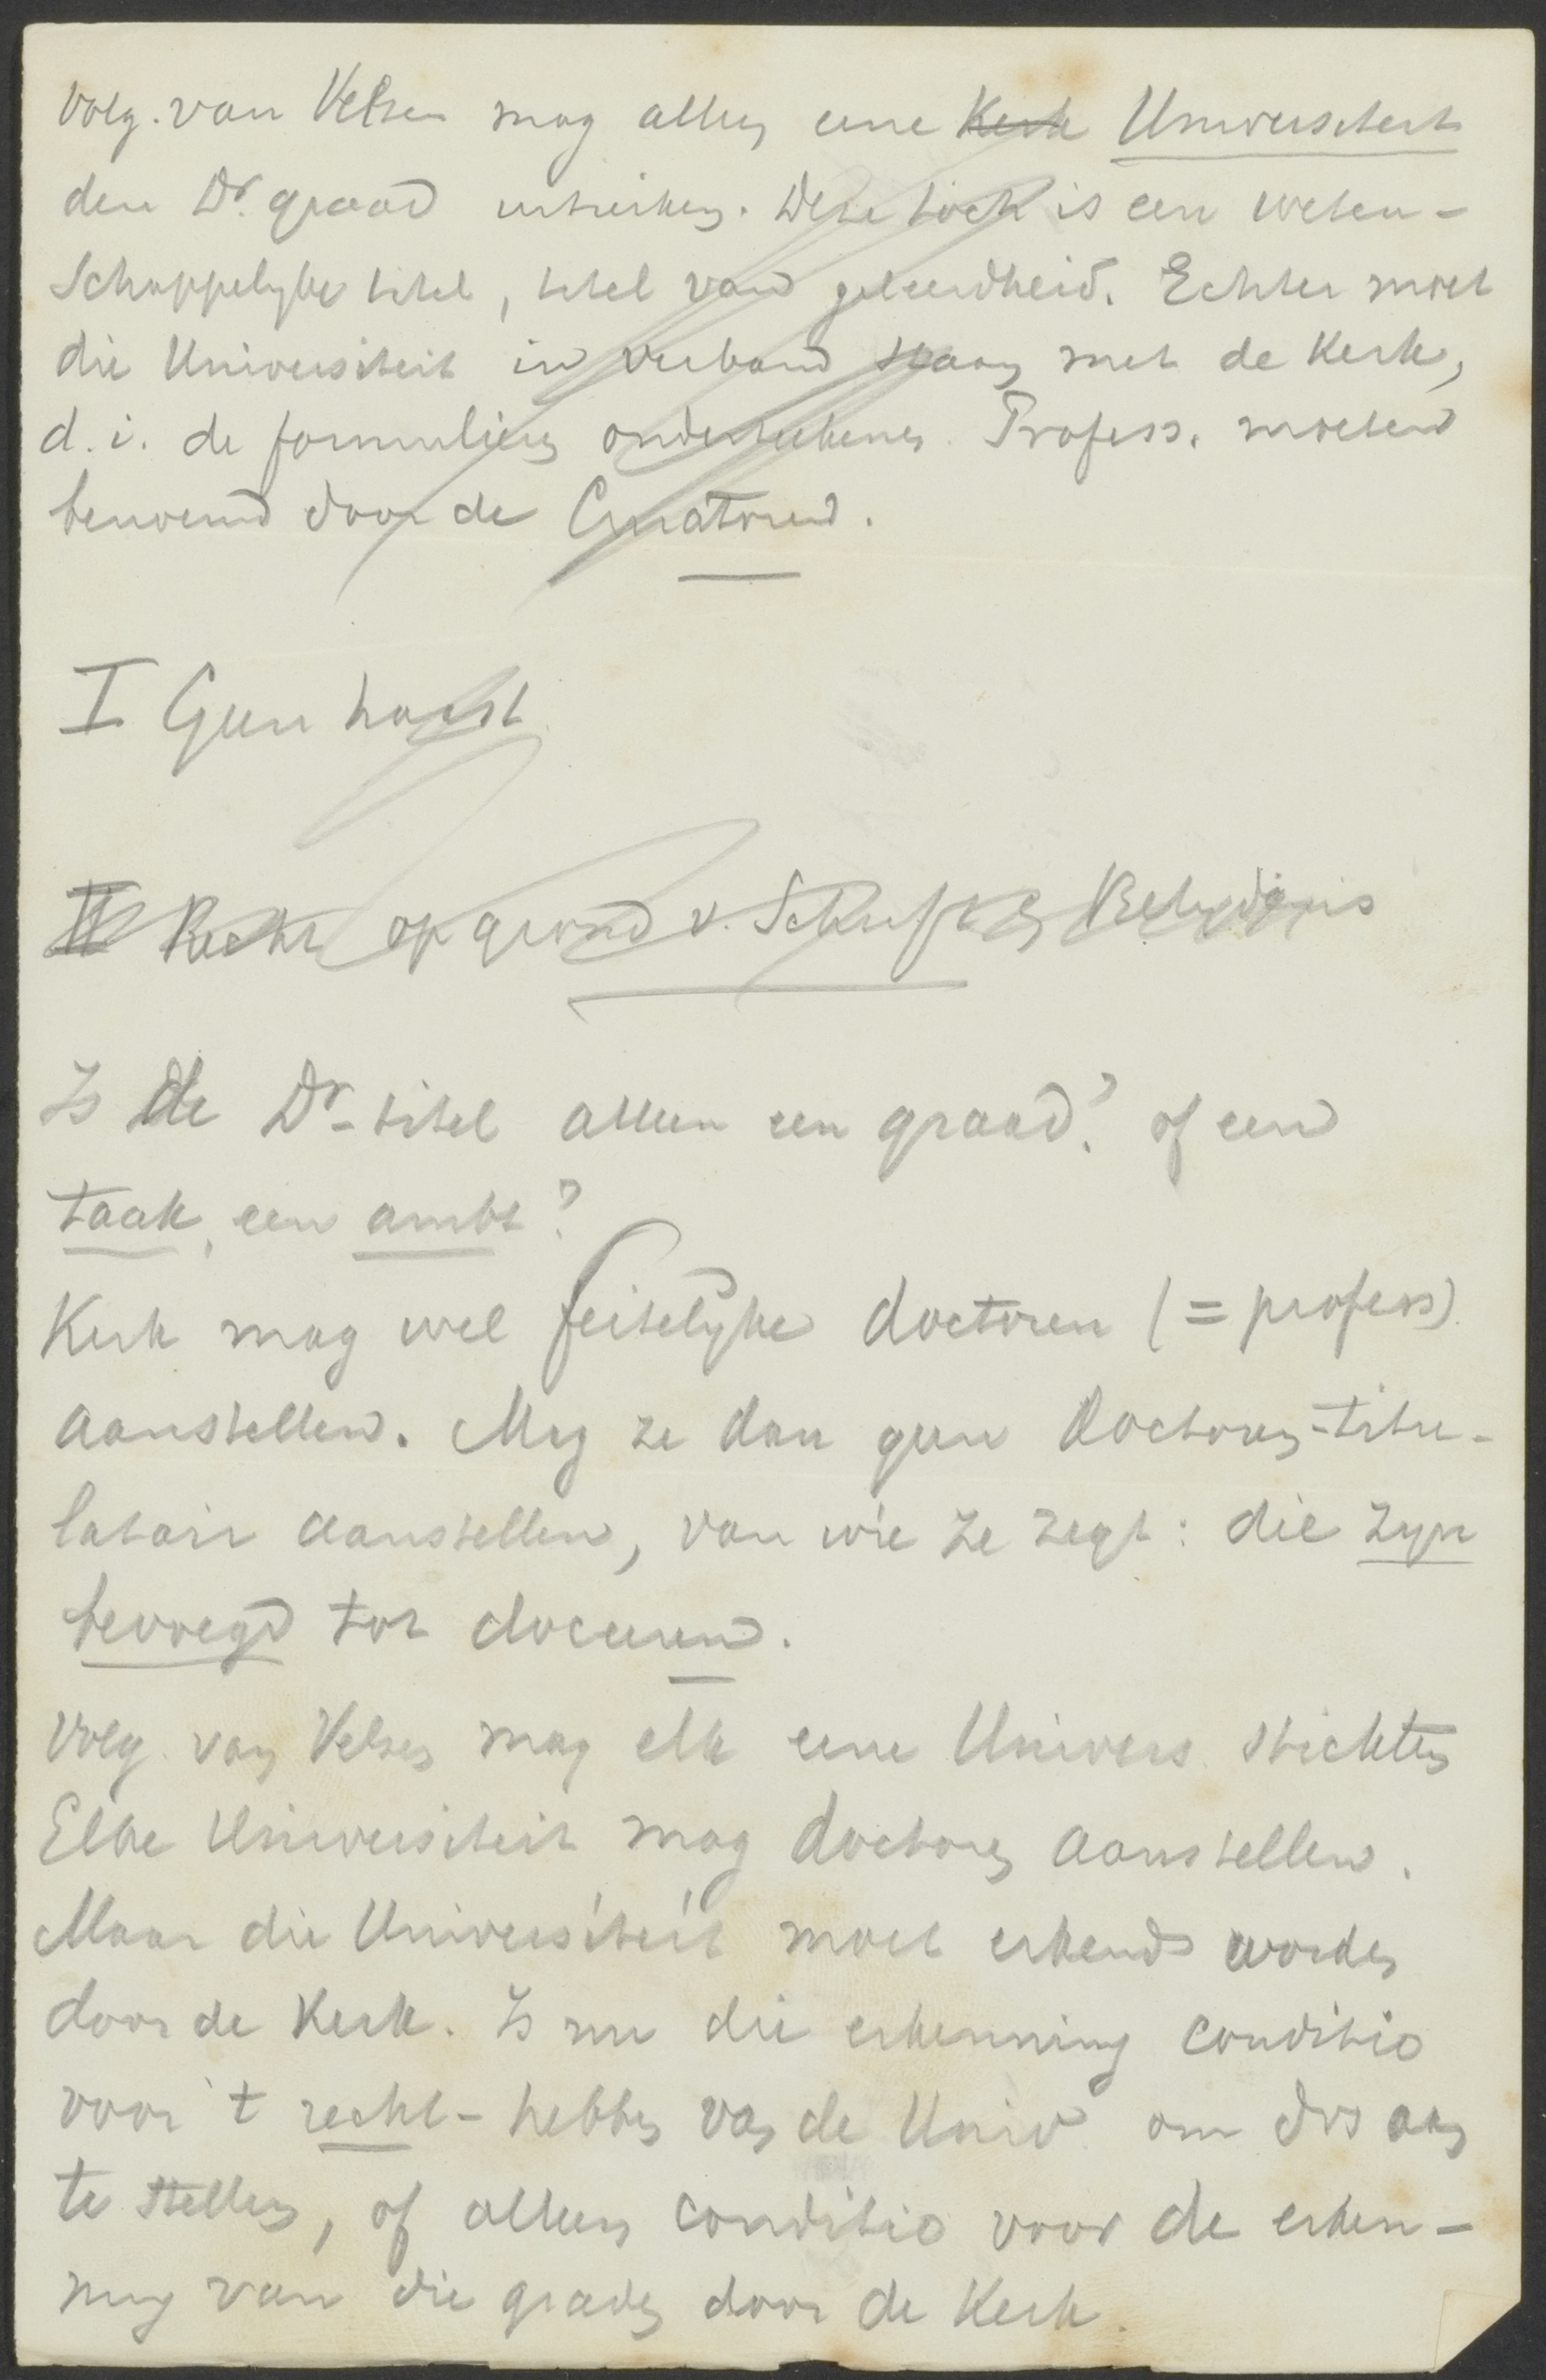 Volg. van Velzen mag alleen eene Kerk Universiteit
den Dr. graad uitreiken. Deze toch is een weten-
schappelyke titel, titel van geleerdheid. Echter moet
die Universiteit in verband staan met de Kerk,
d. i. de formulieren onderteekenen. Profess. moeten
benoemd door de Curatoren.
I Geen haast
II Recht op grond v. Schrift en Belydenis
Is de Dr-titel alleen een graad? of een
taak, een ambt?
Kerk mag wel feitelyke doctoren (= profess)
aanstellen. Mag ze dan geen Doctoren-titu-
latair aanstellen, van wie ze zegt: die zyn
bevoegd tot doceeren.
Volg. van Velzen mag elk eene Univers. stichten
Elke Universiteit mag doctoren aanstellen.
Maar die Universiteit moet erkend worden
door de Kerk. Is nu die erkenning conditio
voor 't recht-hebben van de Univ. om drs aan
te stellen, of alleen conditio voor de erken-
ning van die graden door de Kerk.